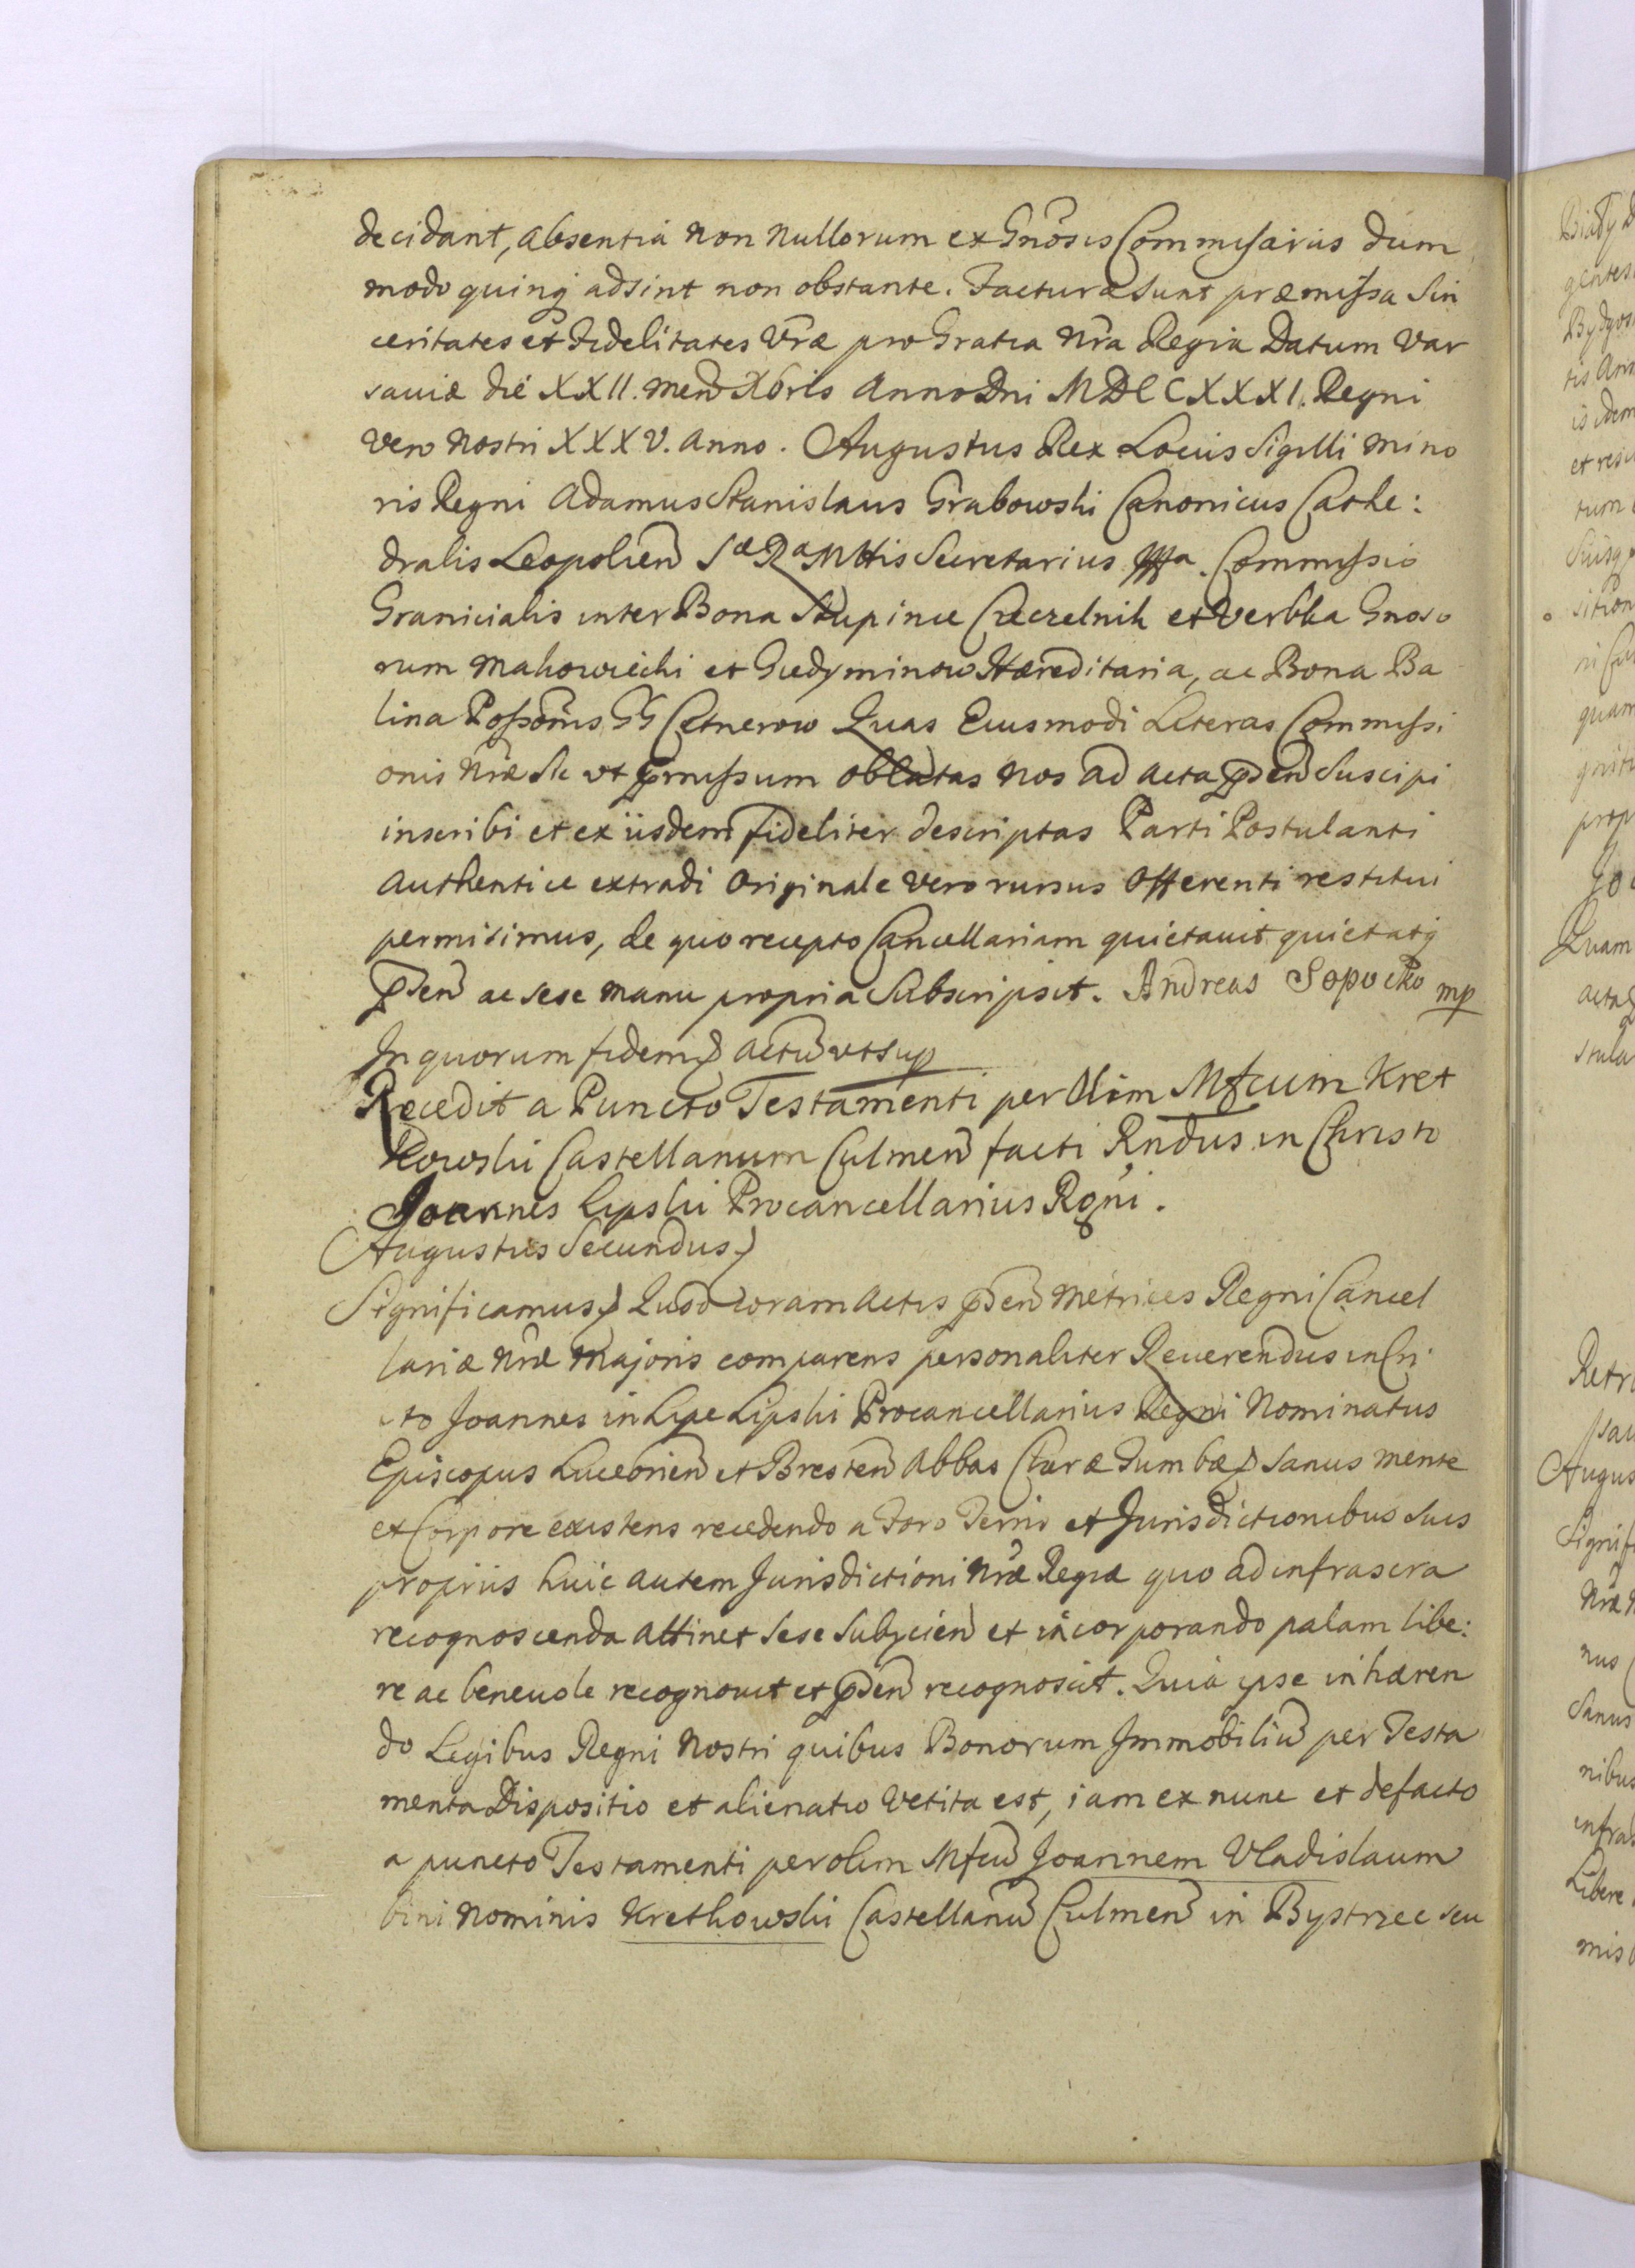 decidant, absentia non nullorum ex Gnosis Commissariis dum
modo quinq adsint non obstante. Facturæ sunt præmissa Sin
ceritates et Fidelitates Vræ pro Gratia Nra Regia Datum Var
saviæ die XXII. Men Xbris Anno Dni MDCCXXXI. Regni
vero Nostri XXXV. Anno. Augustus Rex Locus Sigilli Mino
ris Regni Adamus Stanislaus Grabowski Canonicus Cathe:
dralis Leopolien Sæ Ræ Mttis Secretarius Commissio
Granicialis inter Bona Stupince Czeczelnik et Verbka Gnoso
rum Makowiecki et Giedyminow Hæreditaria, ac Bona Ba
lina Possonis GG Cetnerow Quas Eiusmodi Literas Commissi
onis Nræ Sic ut pmissum oblatas Nos ad acta pden Suscipi
inscribi et ex iisdem fideliter descriptas Parti Postulanti
Authentice extradi Originale vero rursus Offerenti restitui
permisimus, de quo recepto Cancellariam quietavit quietatq
pden ac sese manu propria Subscripsit. Andreas Sopocko mp
In quorum fidem) actu ut sup
Recedit a Puncto Testamenti per Olim Mfcum Kret
kowski Castellanum Culmen facti Rndus in Christo
Joannes Lipski Procancellarius Rgni.
Augustus Secundus)
Significamus) Quod coram actis pden Metrices Regni Cancel
lariæ Nræ Majoris comparens personaliter Reverendus in Cri
sto Joannes in Lipe Lipski Procancellarius Regni Nominatus
Episcopus Luceorien et Bresten Abbas Claræ Tumbæ) Sanus mente
et Corpore existens recedendo a Foro Terrio et Jurisdictionibus Suis
propriis huic autem Jurisdictioni Nræ Regiæ quo ad infrascra
recognoscenda attinet Sese Subijcien et incorporando palam libe:
re ac benevole recognovit et pden recognoscit. Quia ipse inhæren
do Legibus Regni Nostri quibus Bonorum Immobiliu per Testa
menta Dispositio et alienatio Vetita est, iam ex nunc et defacto
a puncto Testamenti per olim Mfcu Joannem Vladislaum
bini Nominis Kretkowski Castellanu Culmen in Bystrzec seu